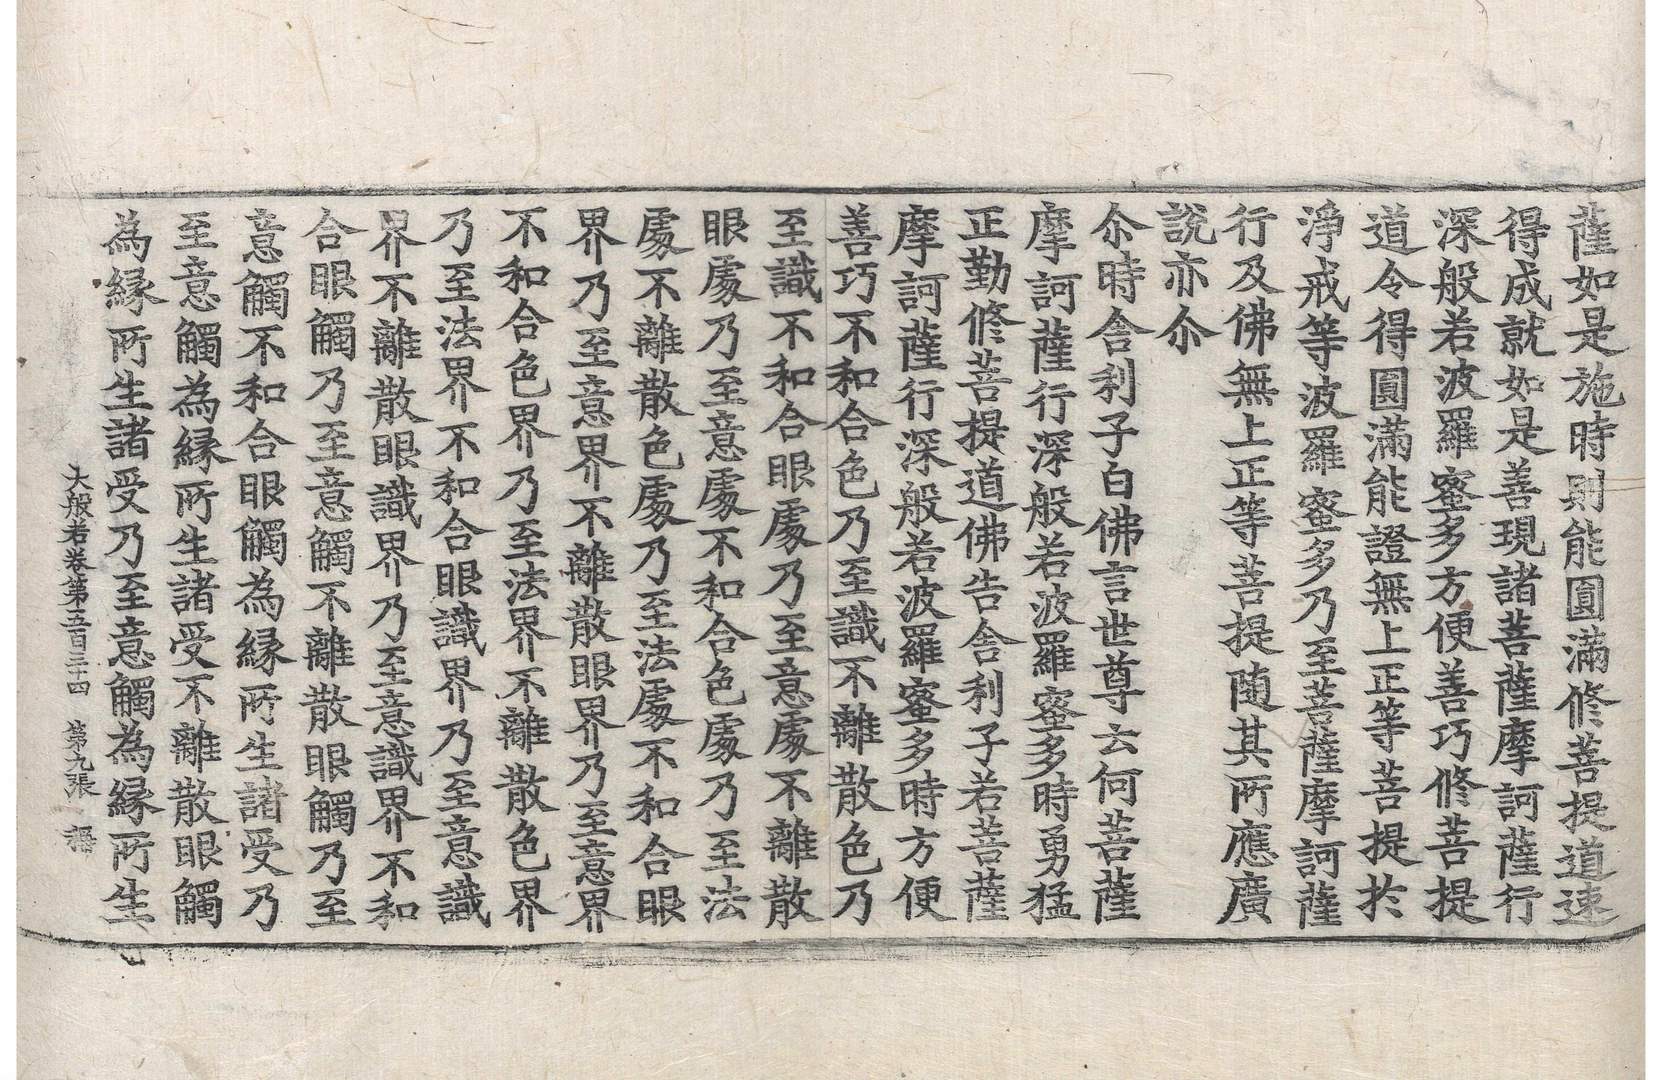 薩如是施時則能圓滿修菩提道速
得成就如是善現諸菩薩摩訶薩行
深般若波羅蜜多方便善巧修菩提
道令得圓滿能證無上正等菩提於
淨戒等波羅蜜多乃至菩薩摩訶薩
行及佛無上正等菩提随其所應廣
說亦尒
尒時舍利子白佛言世尊云何菩薩
摩訶薩行深般若波羅蜜多時勇猛
正勤修菩提道佛告舍利子若菩薩
摩訶薩行深般若波羅蜜多時方便
善巧不和合色乃至識不離散色乃
至識不和合眼處乃至意處不離散
眼處乃至意處不和合色處乃至法
處不離散色處乃至法處不和合眼
界乃至意界不離散眼界乃至意界
不和合色界乃至法界不離散色界
乃至法界不和合眼識界乃至意識
界不離散眼識界乃至意識界不和
合眼觸乃至意觸不離散眼觸乃至
意觸不和合眼觸為縁所生諸受乃
至意觸為縁所生諸受不離散眼觸
為縁所生諸受乃至意觸為縁所生
大般若卷第五百三十四 第九張